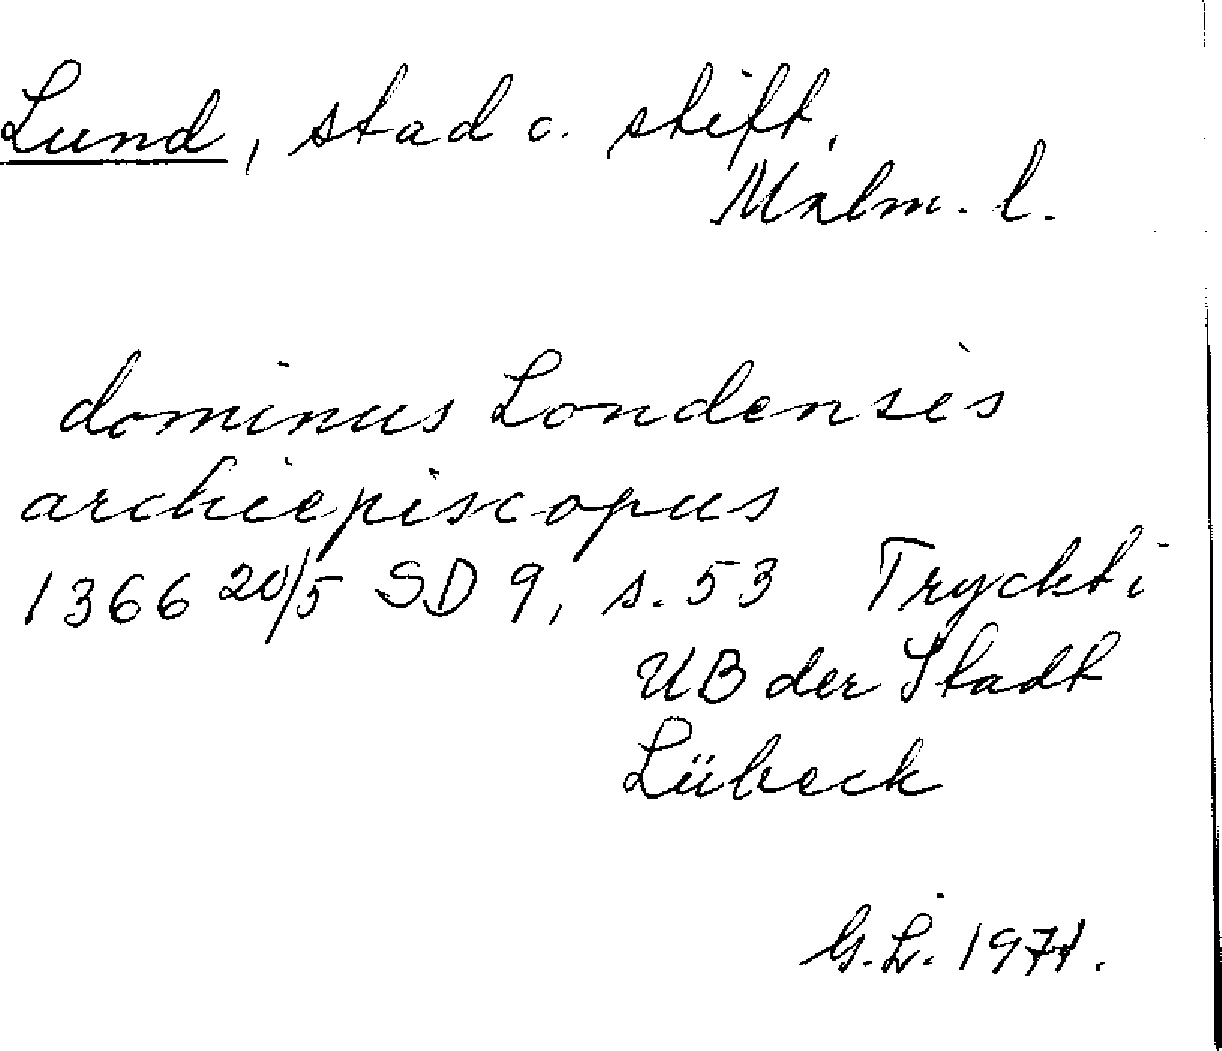 Lund, stad o. stift.
Malm. l.
dominus Londensis
archiepiscopus
1366 20/5 SD 9, s. 53 Tryckt i
UB der Stadt
Lübeck
G.L. 1971.